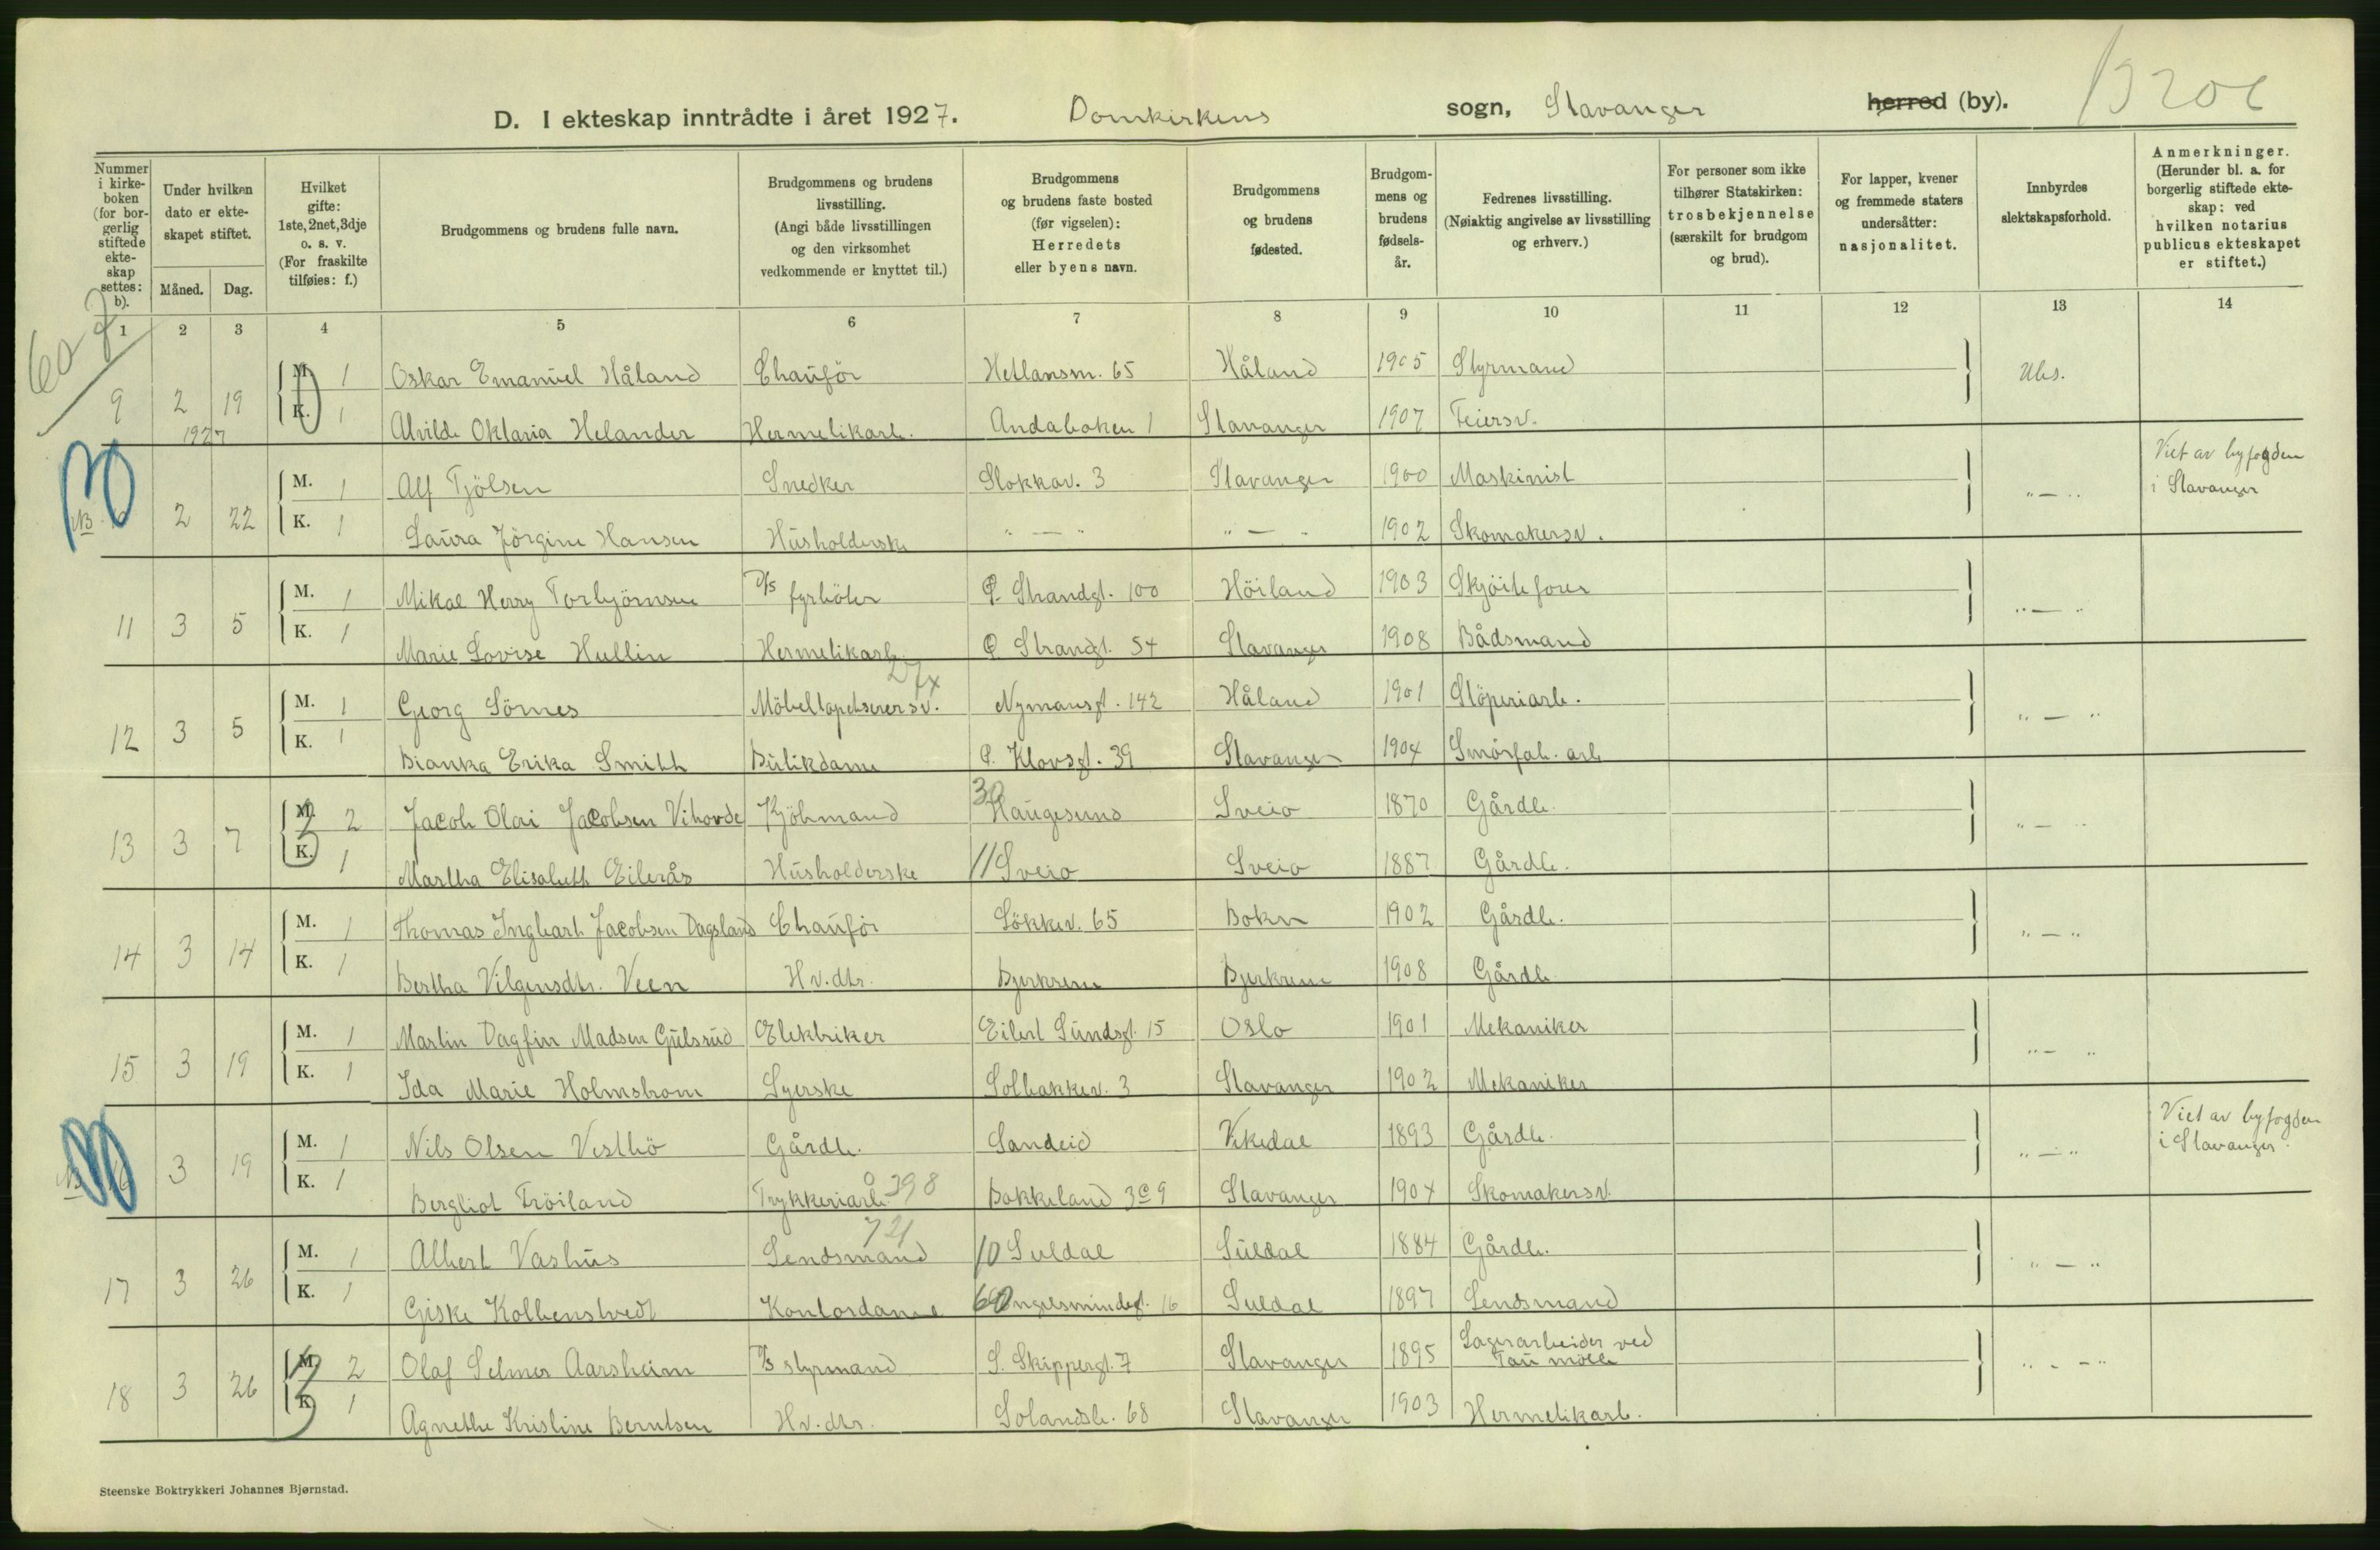 D. I ekteskap inntrådte i året 1927. Domkirkens sogn, Stavanger herred (by).
Nummer i kirkeboken (for borgerlig stiftede ekteskap settes: b).
Under hvilken dato er ekteskapet stiftet.
Måned. Dag.
Hvilket gifte: 1ste, 2net, 3dje o. s. v. (For fraskilte tilføies: f.)
Brudgommens og brudens fulle navn.
Brudgommens og brudens livsstilling. (Angi både livsstillingen og den virksomhet vedkommende er knyttet til.)
Brudgommens og brudens faste bosted (før vigselen): Herredets eller byens navn.
Brudgommens og brudens fødested.
Brudgommens og brudens fødselsår.
Fedrenes livsstilling. (Nøiaktig angivelse av livsstilling og erhverv.)
For personer som ikke tilhører Statskirken: trosbekjennelse (særskilt for brudgom og brud).
For lapper, kvener og fremmede staters undersåtter: nasjonalitet.
Innbyrdes slektskapsforhold.
Anmerkninger. (Herunder bl. a. for borgerlig stiftede ekteskap: ved hvilken notarius publicus ekteskapet er stiftet.)
1 2 3 4 5 6 7 8 9 10 11 12 13 14
M. 1 Oskar Emanuel Håland Chauför Hetlansm. 65 Håland 1905 Styrmand Ubs.
9 2 19 K. 1 Alvilde Oktavia Helander Hermetikarb. Andabaken 1 Stavanger 1907 Feiersv.
1927
M. 1 Alf Tjölsen Snedker Stokkav. 3 Stavanger 1900 Maskinist " — " Viet av byfogden i Stavanger
2 22 K. 1 Laura Jörgine Hansen Husholderske " — " " — " 1902 Skomakersv.
M. 1 Mikal Herry Torbjörnsen D/S fyrböter Ø. Strandgt. 100 Höiland 1903 Skjöitefører " — "
11 3 5 K. 1 Marie Lovise Hullin Hermetikarb. Ø. Strandgt. 54 Stavanger 1908 Bådsmand
M. 1 Georg Sörnes Möbeltapetserersv. Nymansgt. 142 Håland 1901 Stöperiarb. " — "
12 3 5 K. 1 Bianka Erika Smith Butikdame Ø. Klovsgt. 39 Stavanger 1904 Smörfab. arb
M. 2 Jacob Olai Jacobsen Vihovde Kjöbmand Haugesund Sveio 1870 Gårdb. " — "
13 3 7 K. 1 Martha Elisabeth Eilerås Husholderske 11 Sveio Sveio 1887 Gårdb.
M. 1 Thomas Ingbart Jacobsen Dagsland Chauför Løkkev. 65 Bokn 1902 Gårdb. " — "
14 3 14 K. 1 Bertha Vilgensdtr. Veen Hv. dtr. Bjerkrem Bjerkrem 1908 Gårdb.
M. 1 Martin Dagfin Madsen Gulsrud Elektriker Eilert Sundsgt. 15 Oslo 1901 Mekaniker " — "
15 3 19 K. 1 Ida Marie Holmstrom Syerske Solbakkev. 3 Stavanger 1902 Mekaniker
M. 1 Nils Olsen Vestbö Gårdb. Sandeid Vikedal 1893 Gårdb. " — " Viet av byfogden i Stavanger.
3 19 K. 1 Bergliot Fröiland Trykkeriarb. 398 Bakkeland 3c 9 Stavanger 1904 Skomakersv.
M. 1 Albert Vashus Lensmand 721 10 Suldal Suldal 1884 Gårdb. " — "
17 3 26 K. 1 Giske Kolbenstvedt Kontordame Engelsmindegt. 16 Suldal 1897 Lensmand
M. 2 Olaf Selmer Aarsheim D/S styrmand S. Skippergt. 7 Stavanger 1895 Lagerarbeider ved Tau mölle " — "
18 3 26 K. 1 Agnethe Kristine Berntsen Hv. dtr. Solandsb. 68 Stavanger 1903 Hermetikarb.
Steenske Boktrykkeri Johannes Bjørnstad.